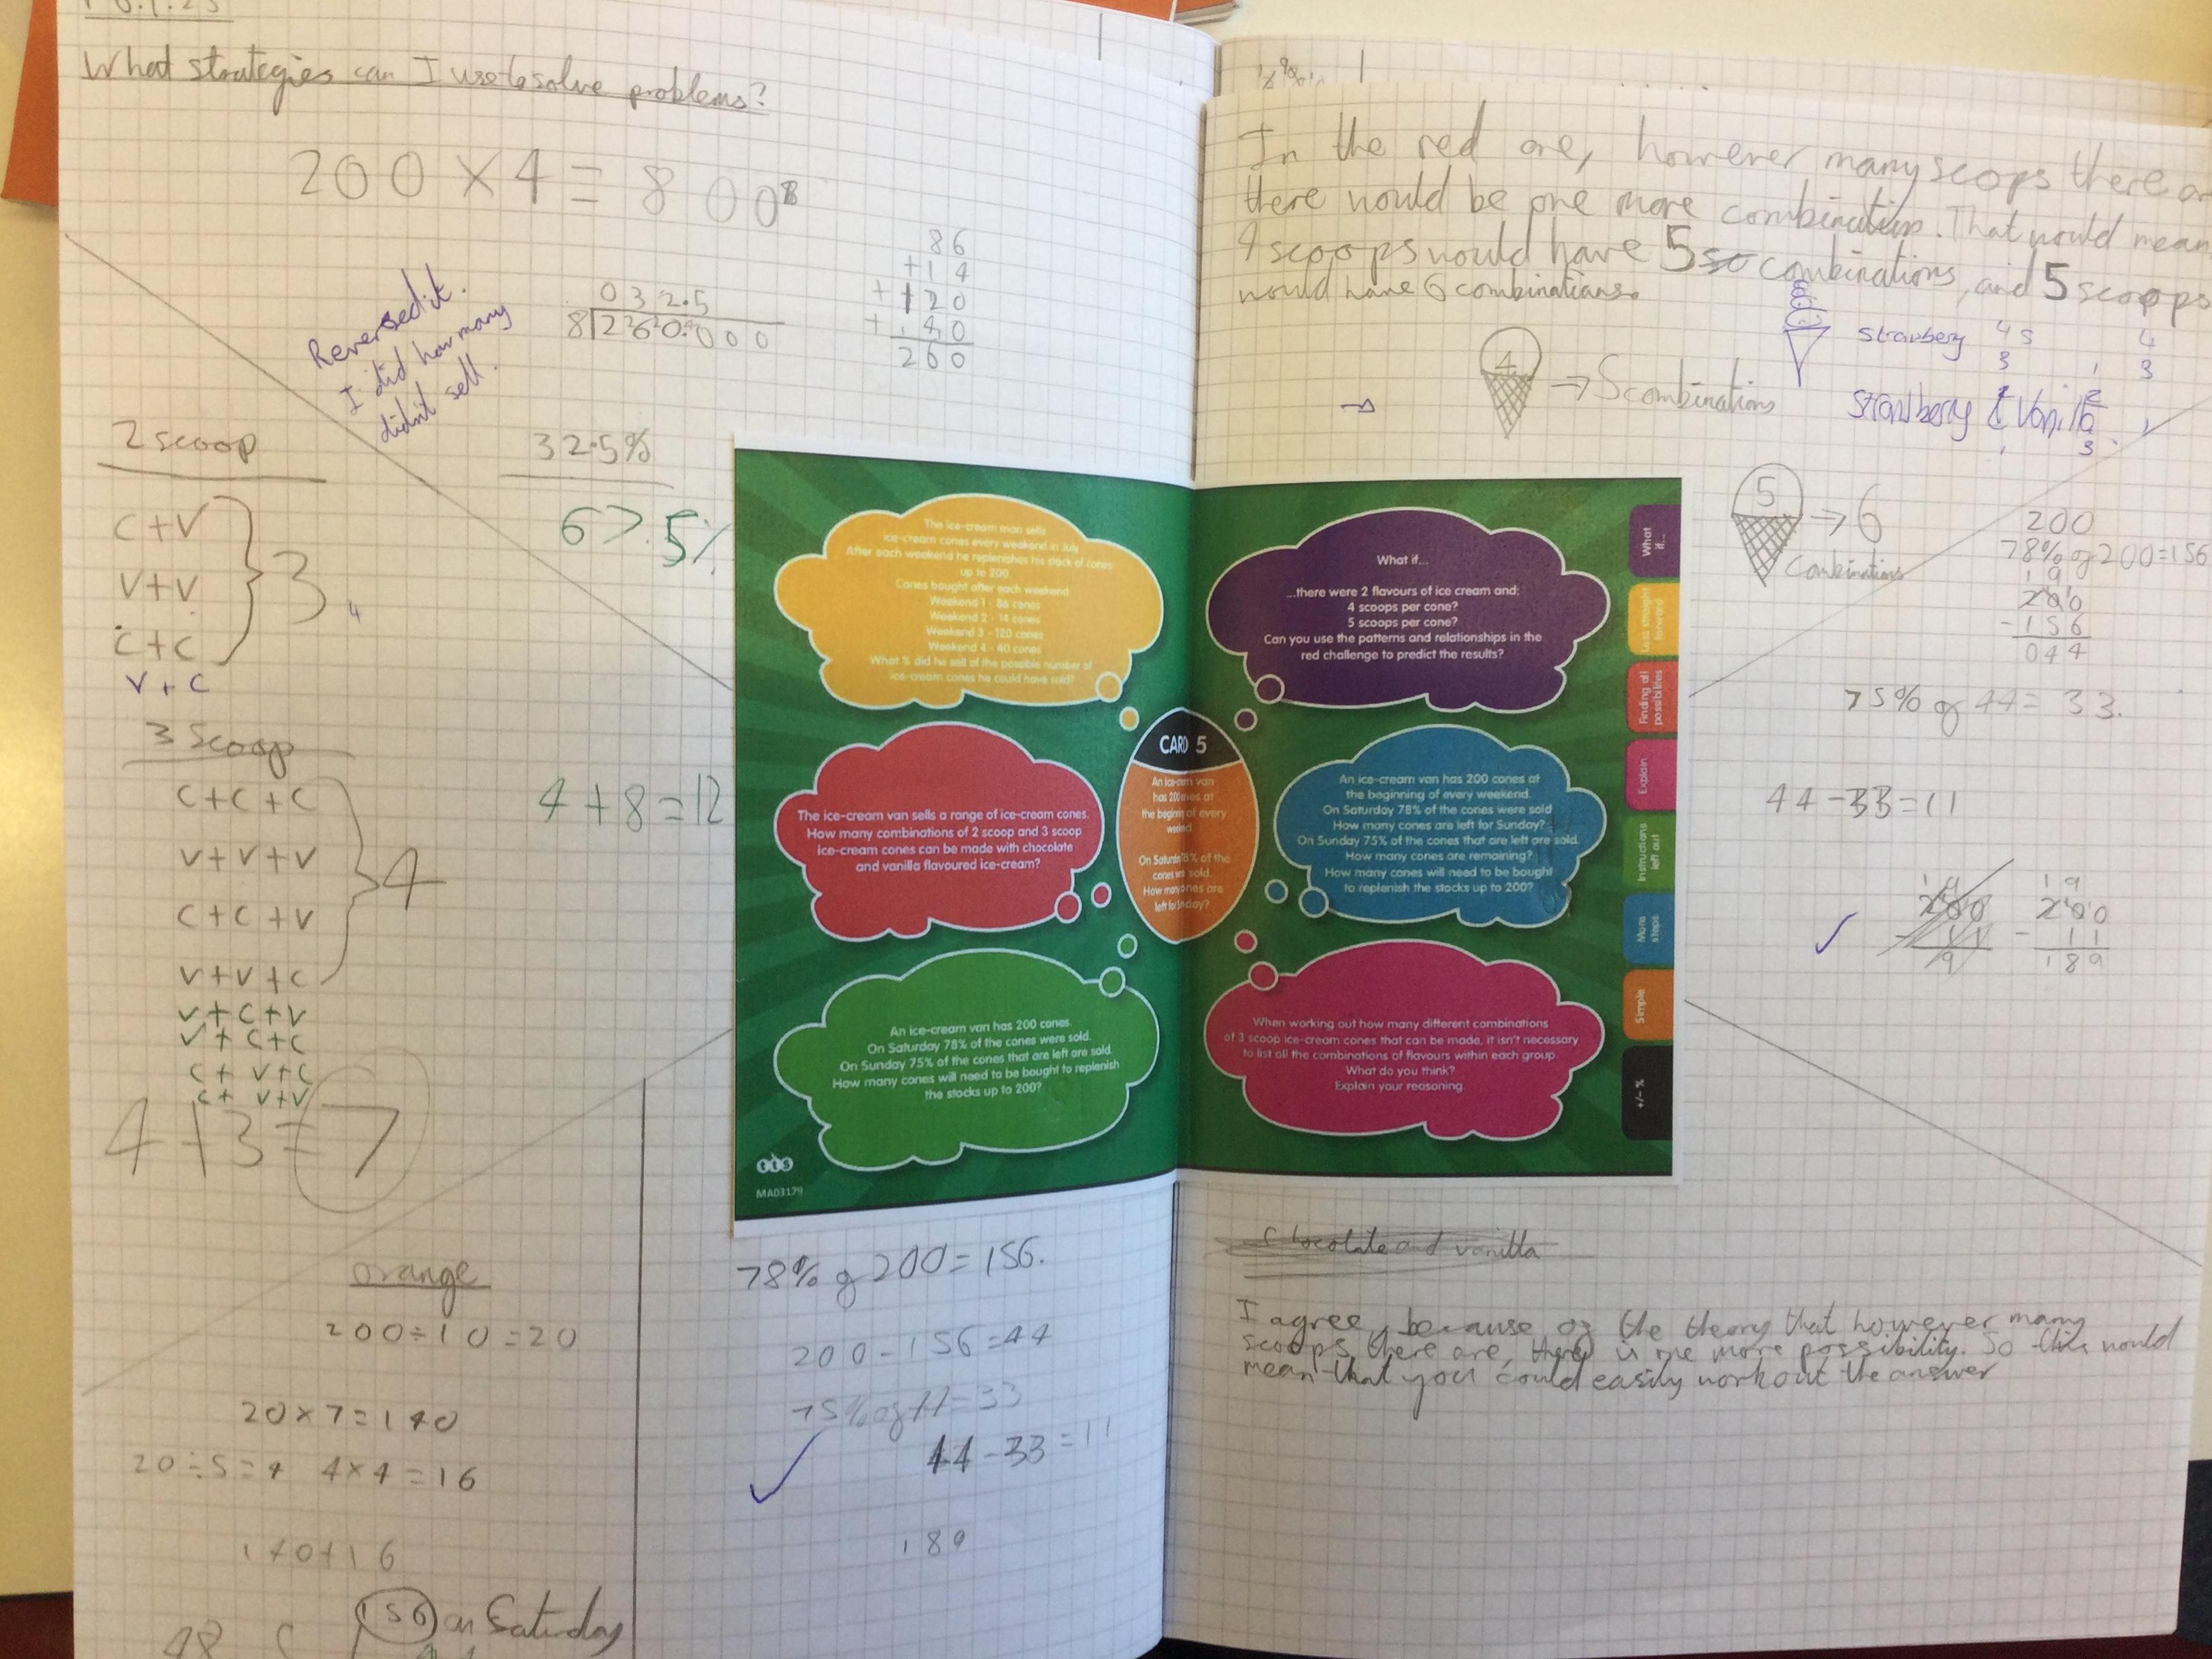 What strategies can I use to solve problems?
200 × 4 = 800
86
+14
+120
+40
260
032.5
8 260.000
Reversed it.
I did how many
didn't sell.
32.5%
67.5%
2 scoop
C+V
V+V
C+C
3
4
V+C
3 Scoop
C+C+C
V+V+V
C+C+V
V+V+C
4
V+C+V
V+C+C
C+V+C
C+V+V
4+3=7
4+8=12
orange
200÷10=20
20×7=140
20÷5=4 4×4=16
140+16
156 on Saturday
78% of 200=156.
200-156=44
75% of 44=33
44-33=11
189
The ice-cream man sells
ice-cream cones every weekend in July
After each weekend he replenishes his stock of cones
up to 200.
Cones bought after each weekend
Weekend 1 - 86 cones
Weekend 2 - 14 cones
Weekend 3 - 120 cones
Weekend 4 - 40 cones
What % did he sell of the possible number of
ice-cream cones he could have sold?
The ice-cream van sells a range of ice-cream cones.
How many combinations of 2 scoop and 3 scoop
ice-cream cones can be made with chocolate
and vanilla flavoured ice-cream?
An ice-cream van has 200 cones.
On Saturday 78% of the cones were sold.
On Sunday 75% of the cones that are left are sold.
How many cones will need to be bought to replenish
the stocks up to 200?
tts
MA03179
CARD 5
An ice-cream van
has 200 cones at
the beginning of every
weekend.
On Saturday 78% of the
cones were sold.
How many cones are
left for Sunday?
What if...
...there were 2 flavours of ice cream and:
4 scoops per cone?
5 scoops per cone?
Can you use the patterns and relationships in the
red challenge to predict the results?
An ice-cream van has 200 cones at
the beginning of every weekend.
On Saturday 78% of the cones were sold
How many cones are left for Sunday?
On Sunday 75% of the cones that are left are sold.
How many cones are remaining?
How many cones will need to be bought
to replenish the stocks up to 200?
When working out how many different combinations
of 3 scoop ice-cream cones that can be made, it isn't necessary
to list all the combinations of flavours within each group.
What do you think?
Explain your reasoning.
What if...
Less straight forward
Finding all possibilities
Explain
Instructions left out
More steps
Simple
+/- %
In the red one, however many scoops there are
there would be one more combination. That would mean
4 scoops would have 5 combinations, and 5 scoops
would have 6 combinations.
4 → 5 combinations
strawbery 4 5 4
3 3
strawbery & Vanilla
5 → 6
Combinations
200
78% of 200=156
200
-156
044
75% of 44= 33.
44-33=11
200
-11
9
200
-11
189
Chocolate and vanilla
I agree, because of the theory that however many
scoops there are, there is one more possibility. So this would
mean that you could easily work out the answer